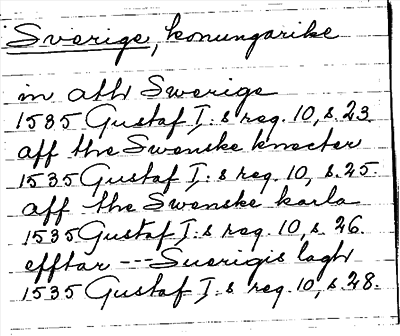 Sverige, konungarike
in ath Swerige
1535 Gustaf I:s reg. 10, s. 23
aff the Swenske knecter
1535 Gustaf I:s reg. 10, s. 25.
aff the Swenske karla
1535 Gustaf I:s reg. 10, s. 26.
efftar --- Suerigis lagh
1535 Gustaf I:s reg. 10, s. 28.